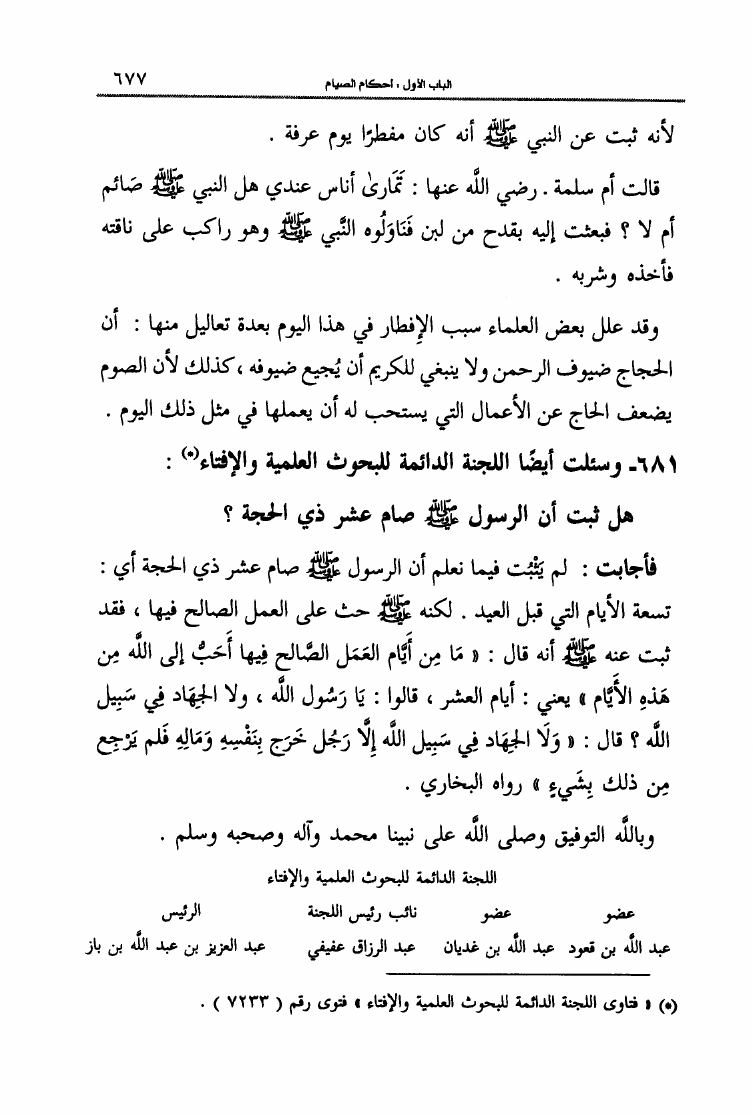 الباب الأول : أحكام الصيام ٦٧٧
لأنه ثبت عن النبي ﷺ أنه كان مفطرًا يوم عرفة .
قالت أم سلمة . رضي اللَّه عنها : تَمَارىٰ أناس عندي هل النبي ﷺ صَائم
أم لا ؟ فبعثت إليه بقدح من لبن فَنَاوَلُوه النَّبي ﷺ وهو راكب على ناقته
فأخذه وشربه .
وقد علل بعض العلماء سبب الإِفطار في هذا اليوم بعدة تعاليل منها : أن
الحجاج ضيوف الرحمن ولا ينبغي للكريم أن يُجيع ضيوفه ، كذلك لأن الصوم
يضعف الحاج عن الأعمال التي يستحب له أن يعملها في مثل ذلك اليوم .
٦٨١ـ وسئلت أيضًا اللجنة الدائمة للبحوث العلمية والإفتاء(*) :
هل ثبت أن الرسول ﷺ صام عشر ذي الحجة ؟
فأجابت : لم يَثْبُت فيما نعلم أن الرسول ﷺ صام عشر ذي الحجة أي :
تسعة الأيام التي قبل العيد . لكنه ﷺ حث على العمل الصالح فيها ، فقد
ثبت عنه ﷺ أنه قال : « مَا مِن أَيَّام العَمَل الصَّالح فِيها أَحَبُّ إلى اللَّه مِن
هَذهِ الأَيَّام » يعني : أيام العشر ، قالوا : يَا رَسُول اللَّه ، ولا الجِهَاد فِي سَبِيل
اللَّه ؟ قال : « وَلَا الجِهَاد فِي سَبِيل اللَّه إِلَّا رَجُل خَرَج بِنَفْسِهِ وَمَالِهِ فَلم يَرْجِع
مِن ذلك بِشَيءٍ » رواه البخاري .
وباللَّه التوفيق وصلى اللَّه على نبينا محمد وآله وصحبه وسلم .
اللجنة الدائمة للبحوث العلمية والإفتاء
عضو عضو نائب رئيس اللجنة الرئيس
عبد اللَّه بن قعود عبد اللَّه بن غديان عبد الرزاق عفيفي عبد العزيز بن عبد اللَّه بن باز
(*) « فتاوى اللجنة الدائمة للبحوث العلمية والإفتاء » فتوى رقم ( ٧٢٣٣ ) .